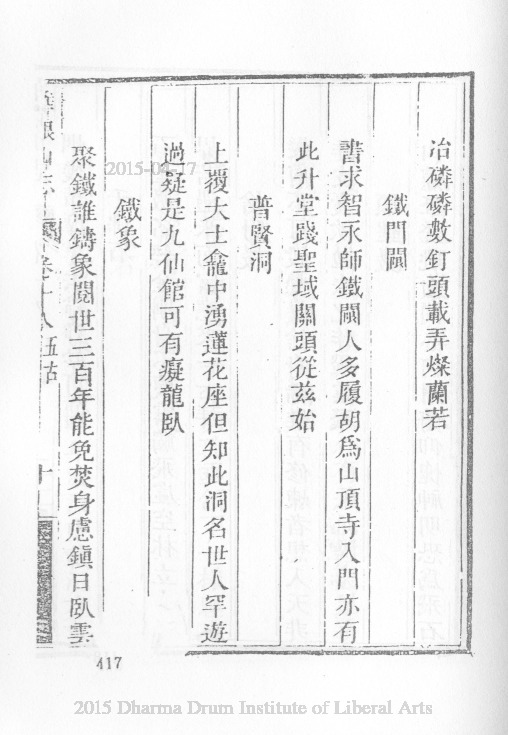 冶磷磷數釘頭載弄燦蘭若
鐵門閫
書求智永師鐵閫人多履胡爲山頂寺入門亦有
此升堂踐聖域關頭從兹始
普賢洞
上覆大士龕中湧蓮花座但知此洞名世人罕遊
過疑是九仙館可有癡龍臥
鐵象
聚鐵誰鑄象閱世三百年能免焚身慮鎮日臥雲
山志 卷十八 五古
十
2015-04-17
417
2015 Dharma Drum Institute of Liberal Arts